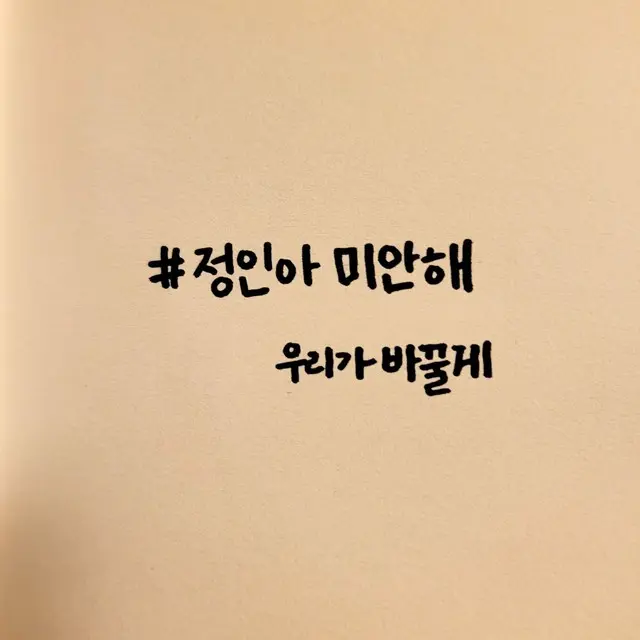 #정인아 미안해
우리가 바꿀게